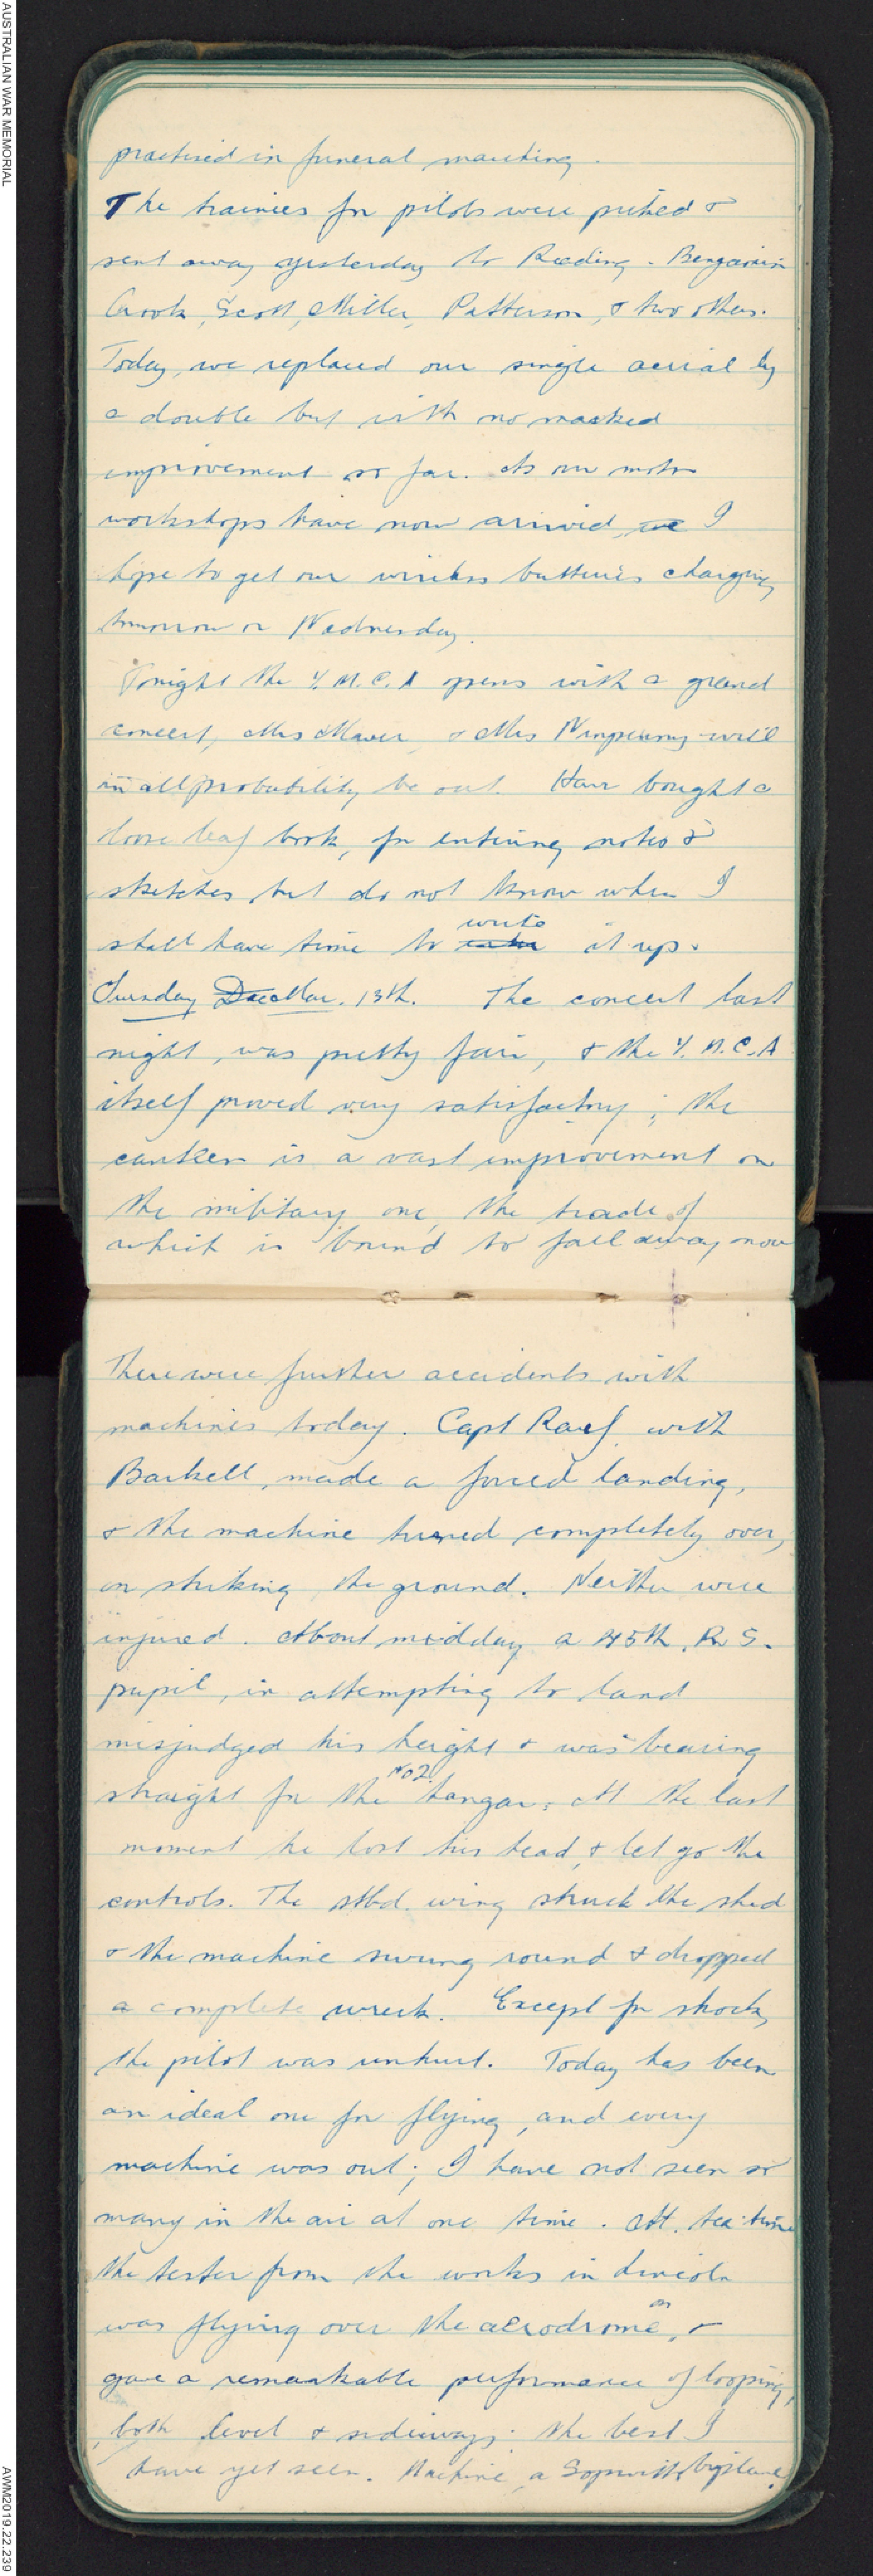 AUSTRALIAN WAR MEMORIAL
practised in funeral marching.
The trainees for pilots were picked &
sent away yesterday to Reading. Benjamin
Crook, Scott, Miller, Patterson, & two others.
Today, we replaced our single aerial by
a double but with no marked
improvement so far. As our motor
workshops have now arrived, we I
hope to get our wireless batteries charging
tomorrow or Wednesday.
Tonight the Y.M.C.A opens with a grand
concert, Mrs Maver & Mrs will
in all probability be out. Have bought a
loose leaf book, for entering notes &
sketches but do not know when I
shall have time to write it up.
Tuesday Dec Mar. 13th. The concert last
night, was pretty fair, & the Y.M.C.A
itself proved very satisfactory; the
canteen is a vast improvement on
the military one, the trade of
which is bound to fall away now
There were further accidents with
machines today. Capt Raef with
Barkell, made a forced landing,
& the machine turned completely over,
on striking the ground. Neither were
injured. About midday a 45th. R. S.
pupil, in attempting to land
misjudged his height & was bearing
straight for the No 2 hangar. At the last
moment he lost his head, & let go the
controls. The stbd. wing struck the shed
& the machine swung round & dropped
a complete wreck. Except for shock,
the pilot was unhurt. Today has been
an ideal one for flying, and every
machine was out; I have not seen so
many in the air at one time. At tea-time
the tester from the works in Lincoln
was flying over the aerodrome, &
gave a remarkable performance of looping,
both level & sideways; the best I
have yet seen. Machine, a Sopwith biplane.
AWM2019.22.239